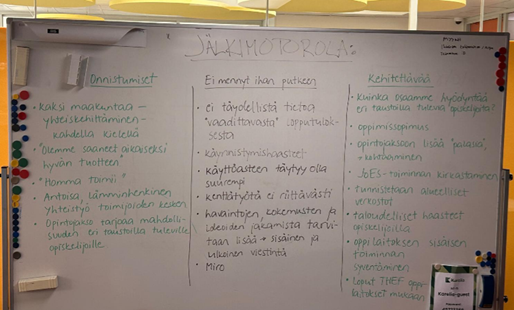 JÄLKIMOTOROLA:
Onnistumiset
• Kaksi maakuntaa –
yhteiskehittäminen –
kahdella kielellä
• "Olemme saaneet aikaiseksi
hyvän tuotteen"
• "Homma toimii"
• Antoisa, lämminhenkinen
yhteistyö toimijoiden kesken
• Opintopaso tarjoaa mahdolli-
suuden eri taustoilla tuleville
opiskelijoille
Ei mennyt ihan putkeen
• ei täydellistä tietoa
"vaadittavasta" lopputulok-
sesta
• käynnistymishaasteet
• käyttöasteen täytyy olla
suurempi
• kenttätyötä ei riittävästi
• havaintojen, kokemusten ja
ideoiden jakamista tarvi-
taan lisää → sisäinen ja
ulkoinen viestintä
• Miro
Kehitettävää
• Kuinka osaamme hyödyntää
eri taustoilla tulevia opiskelijoita?
• oppimissopimus
• opintojakseen lisää "palasia",
• JOES-toiminnan kirkastaminen
• tunnistetaan alueelliset
verkostot
• taloudelliset haasteet
opiskelijoilla
• oppilaitoksen sisäisen
toiminnan
syventäminen
• Loput THEF oppi-
laitokset mukaan